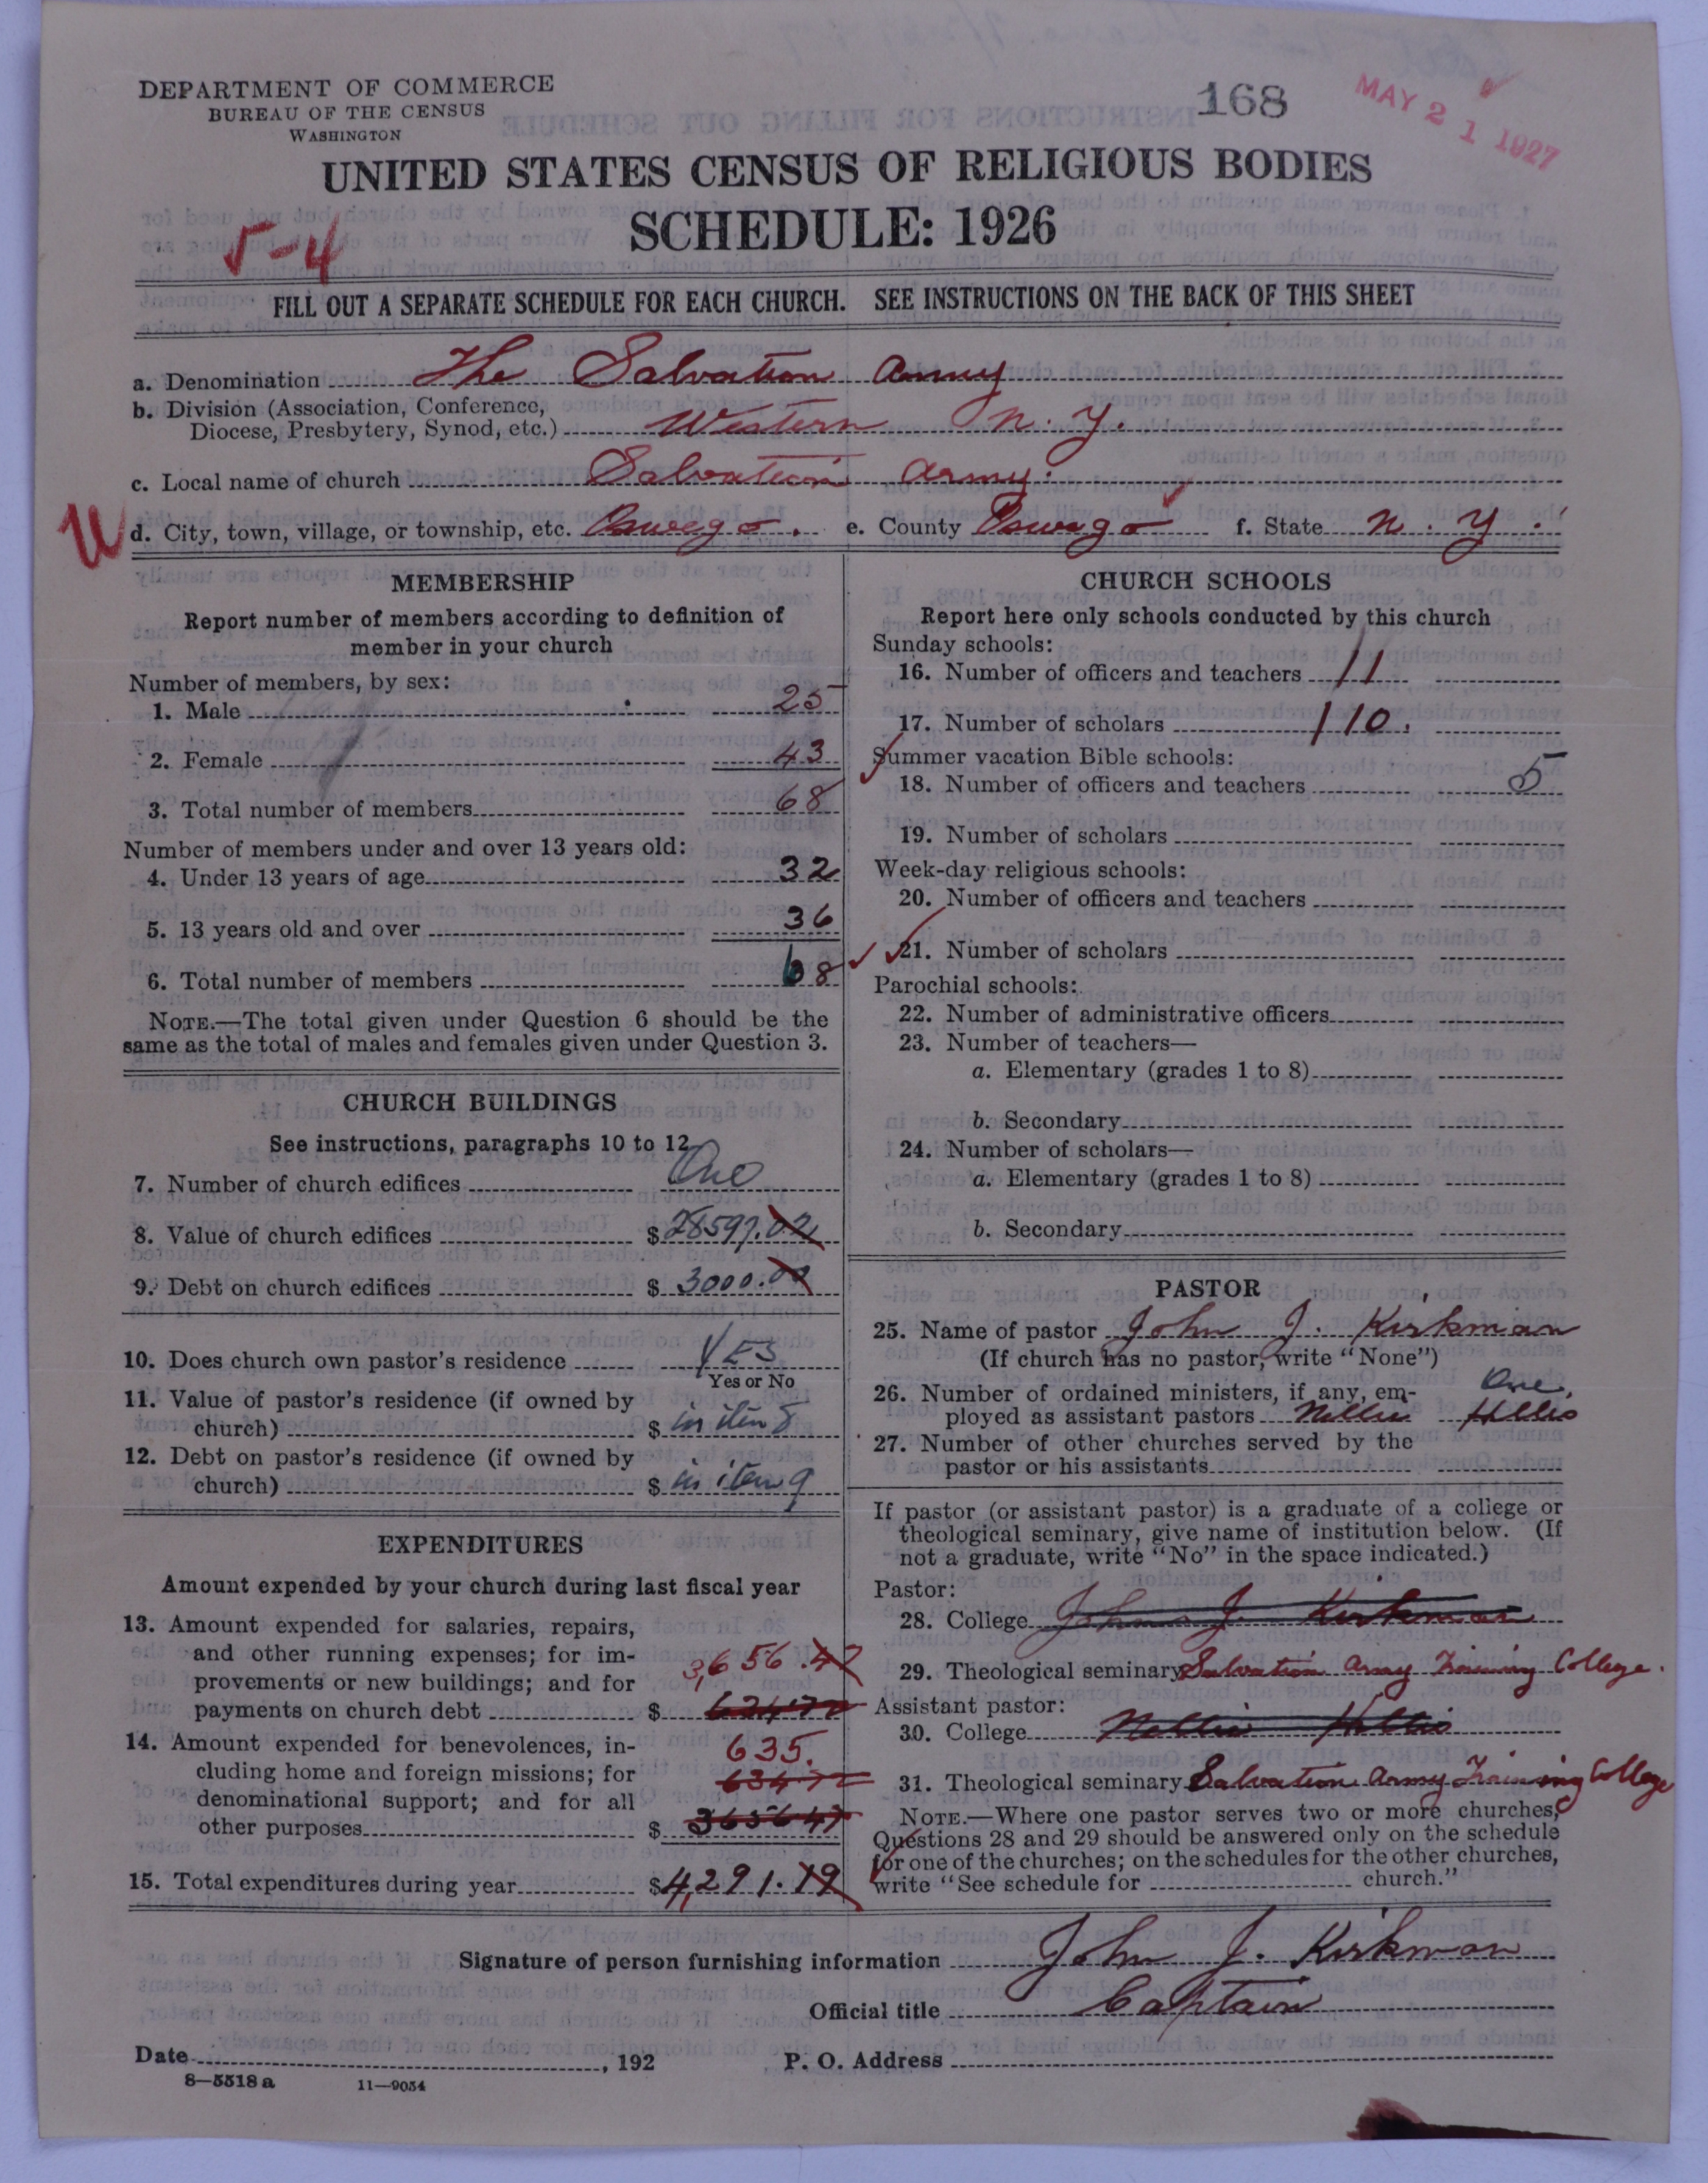 DEPARTMENT OF COMMERCE
BUREAU OF THE CENSUS
WASHINGTON
168
MAY 21 1927
UNITED STATES CENSUS OF RELIGIOUS BODIES
SCHEDULE: 1926
5-4
FILL OUT A SEPARATE SCHEDULE FOR EACH CHURCH. SEE INSTRUCTIONS ON THE BACK OF THIS SHEET
a. Denomination The Salvation Army
b. Division (Association, Conference,
Diocese, Presbytery, Synod, etc.) Western N. Y.
c. Local name of church Salvation Army.
U d. City, town, village, or township, etc. Oswego. e. County Oswego f. State N. Y.
MEMBERSHIP
Report number of members according to definition of
member in your church
Number of members, by sex:
1. Male 25
2. Female 43
3. Total number of members 68
Number of members under and over 13 years old:
4. Under 13 years of age 32
5. 13 years old and over 36
6. Total number of members 68
NOTE.—The total given under Question 6 should be the
same as the total of males and females given under Question 3.
CHURCH BUILDINGS
See instructions, paragraphs 10 to 12
7. Number of church edifices One
8. Value of church edifices $28597.02
9. Debt on church edifices $3000.00
10. Does church own pastor's residence YES
Yes or No
11. Value of pastor's residence (if owned by
church) $ in item 8
12. Debt on pastor's residence (if owned by
church) $ in item 9
EXPENDITURES
Amount expended by your church during last fiscal year
13. Amount expended for salaries, repairs,
and other running expenses; for im-
provements or new buildings; and for
3,656.47
payments on church debt $
14. Amount expended for benevolences, in-
635.
cluding home and foreign missions; for
634 72
denominational support; and for all
other purposes $ 3656 47
15. Total expenditures during year $4,291.19
CHURCH SCHOOLS
Report here only schools conducted by this church
Sunday schools:
16. Number of officers and teachers 11
17. Number of scholars 110.
Summer vacation Bible schools:
18. Number of officers and teachers 5
19. Number of scholars
Week-day religious schools:
20. Number of officers and teachers
21. Number of scholars
Parochial schools:
22. Number of administrative officers
23. Number of teachers—
a. Elementary (grades 1 to 8)
b. Secondary
24. Number of scholars—
a. Elementary (grades 1 to 8)
b. Secondary
PASTOR
25. Name of pastor John J. Kirkman
(If church has no pastor, write "None")
26. Number of ordained ministers, if any, em- One.
ployed as assistant pastors Nellie Hollis
27. Number of other churches served by the
pastor or his assistants
If pastor (or assistant pastor) is a graduate of a college or
theological seminary, give name of institution below. (If
not a graduate, write "No" in the space indicated.)
Pastor:
28. College John J. Kirkman
29. Theological seminary Salvation Army Training College.
Assistant pastor:
30. College Nellie Hollis
31. Theological seminary Salvation Army Training College
NOTE.—Where one pastor serves two or more churches,
Questions 28 and 29 should be answered only on the schedule
for one of the churches; on the schedules for the other churches,
write "See schedule for church."
Signature of person furnishing information John J. Kirkman
Official title Captain
Date , 192 P. O. Address
8—5518 a 11—9054